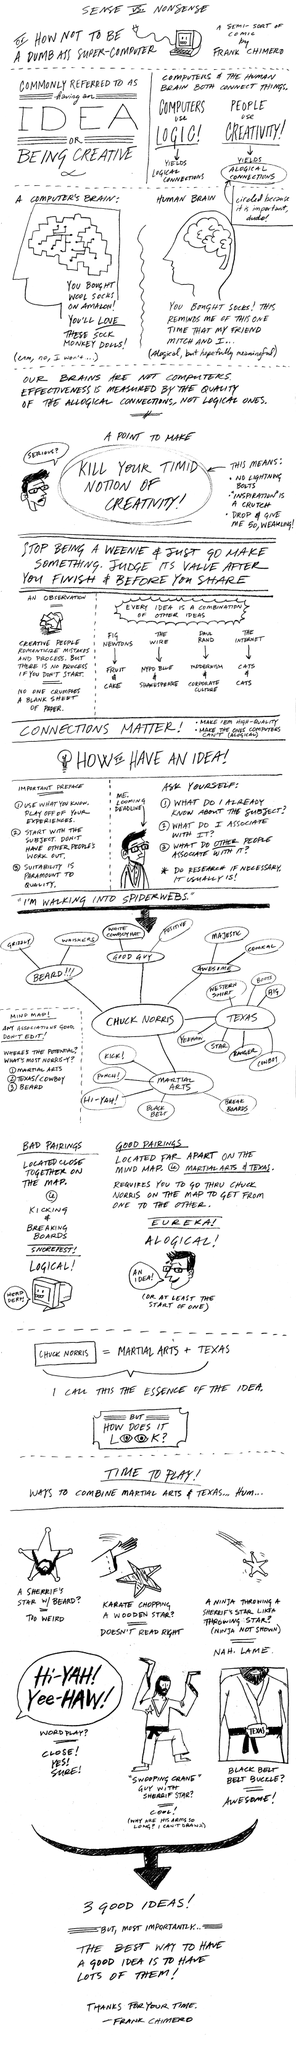 SENSE VS. NONSENSE
OR HOW NOT TO BE
A DUMB ASS SUPER-COMPUTER
A SEMI-SORT OF
COMIC
by
FRANK CHIMERO
COMMONLY REFERRED TO AS
having an
IDEA
OR
BEING CREATIVE
COMPUTERS & THE HUMAN
BRAIN BOTH CONNECT THINGS.
COMPUTERS
USE
LOGIC!
YIELDS
LOGICAL
CONNECTIONS
PEOPLE
USE
CREATIVITY!
YIELDS
ALOGICAL
CONNECTIONS
circled because
it is important,
dude!
A COMPUTER'S BRAIN:
YOU BOUGHT
WOOL SOCKS
ON AMAZON!
YOU'LL LOVE
THESE SOCK
MONKEY DOLLS!
(um, no, I won't...)
HUMAN BRAIN
YOU BOUGHT SOCKS! THIS
REMINDS ME OF THIS ONE
TIME THAT MY FRIEND
MITCH AND I...
(Alogical, but hopefully meaningful)
OUR BRAINS ARE NOT COMPUTERS.
EFFECTIVENESS IS MEASURED BY THE QUALITY
OF THE ALLOGICAL CONNECTIONS, NOT LOGICAL ONES.
A POINT TO MAKE
SERIOUS?
KILL YOUR TIMID
NOTION OF
CREATIVITY!
THIS MEANS:
• NO LIGHTNING
BOLTS
• "INSPIRATION" IS
A CRUTCH
• DROP & GIVE
ME 50, WEAKLING!
STOP BEING A WEENIE & JUST GO MAKE
SOMETHING. JUDGE ITS VALUE AFTER
YOU FINISH & BEFORE YOU SHARE
AN OBSERVATION
CREATIVE PEOPLE
ROMANTICIZE MISTAKES
AND PROCESS. BUT
THERE IS NO PROCESS
IF YOU DON'T START.
NO ONE CRUMPLES
A BLANK SHEET
OF PAPER.
EVERY IDEA IS A COMBINATION
OF OTHER IDEAS
FIG
NEWTONS
FRUIT
&
CAKE
THE
WIRE
NYPD BLUE
&
SHAKESPEARE
PAUL
RAND
MODERNISM
&
CORPORATE
CULTURE
THE
INTERNET
CATS
&
CATS
CONNECTIONS MATTER!
• MAKE 'EM HIGH-QUALITY
• MAKE THE ONES COMPUTERS
CAN'T (ALOGICAL)
HOW TO HAVE AN IDEA!
IMPORTANT PREFACE
1 USE WHAT YOU KNOW.
PLAY OFF OF YOUR
EXPERIENCES.
2 START WITH THE
SUBJECT. DON'T
HAVE OTHER PEOPLE'S
WORK OUT.
3 SUITABILITY IS
PARAMOUNT TO
QUALITY.
ME,
LOOMING
DEADLINE
ASK YOURSELF:
1 WHAT DO I ALREADY
KNOW ABOUT THE SUBJECT?
2 WHAT DO I ASSOCIATE
WITH IT?
3 WHAT DO OTHER PEOPLE
ASSOCIATE WITH IT?
* DO RESEARCH IF NECESSARY.
IT USUALLY IS!
"I'M WALKING INTO SPIDERWEBS."
GRIZZLY
WHISKERS
BEARD!!!
WHITE
COWBOY HAT
POSITIVE
GOOD GUY
MAJESTIC
COMICAL
AWESOME
CHUCK NORRIS
WESTERN
SHIRT
BOOTS
BIG
TEXAS
YEEHAW
STAR
RANGER
COWBOY
KICK!
PUNCH!
HI-YAH!
MARTIAL
ARTS
BLACK
BELT
BREAK
BOARDS
MIND MAP!
ANY ASSOCIATIONS GOOD.
DON'T EDIT!
WHERE'S THE POTENTIAL?
WHAT'S MOST NORRIS-Y?
1 MARTIAL ARTS
2 TEXAS/COWBOY
3 BEARD
BAD PAIRINGS
LOCATED CLOSE
TOGETHER ON
THE MAP.
ie
KICKING
&
BREAKING
BOARDS
SNOREFEST!
LOGICAL!
GOOD PAIRINGS
LOCATED FAR APART ON THE
MIND MAP. ie MARTIAL ARTS & TEXAS.
REQUIRES YOU TO GO THRU CHUCK
NORRIS ON THE MAP TO GET FROM
ONE TO THE OTHER.
EUREKA!
ALOGICAL!
AN
IDEA!
(OR AT LEAST THE
START OF ONE)
CHUCK NORRIS = MARTIAL ARTS + TEXAS
I CALL THIS THE ESSENCE OF THE IDEA.
BUT
HOW DOES IT
LOOK?
TIME TO PLAY!
WAYS TO COMBINE MARTIAL ARTS & TEXAS... HUM...
A SHERRIF'S
STAR W/ BEARD?
TOO WEIRD
KARATE CHOPPING
A WOODEN STAR?
DOESN'T READ RIGHT
A NINJA THROWING A
SHERIFF'S STAR LIKE A
THROWING STAR?
(NINJA NOT SHOWN)
NAH. LAME.
Hi-YAH!
Yee-HAW!
WORDPLAY?
CLOSE!
YES!
SURE!
"SWOOPING CRANE"
GUY WITH
SHERRIF STAR?
COOL!
(WHY ARE HIS ARMS SO
LONG? I CAN'T DRAW)
TEXAS
BLACK BELT
BELT BUCKLE?
AWESOME!
3 GOOD IDEAS!
BUT, MOST IMPORTANTLY...
THE BEST WAY TO HAVE
A GOOD IDEA IS TO HAVE
LOTS OF THEM!
THANKS FOR YOUR TIME.
—FRANK CHIMERO